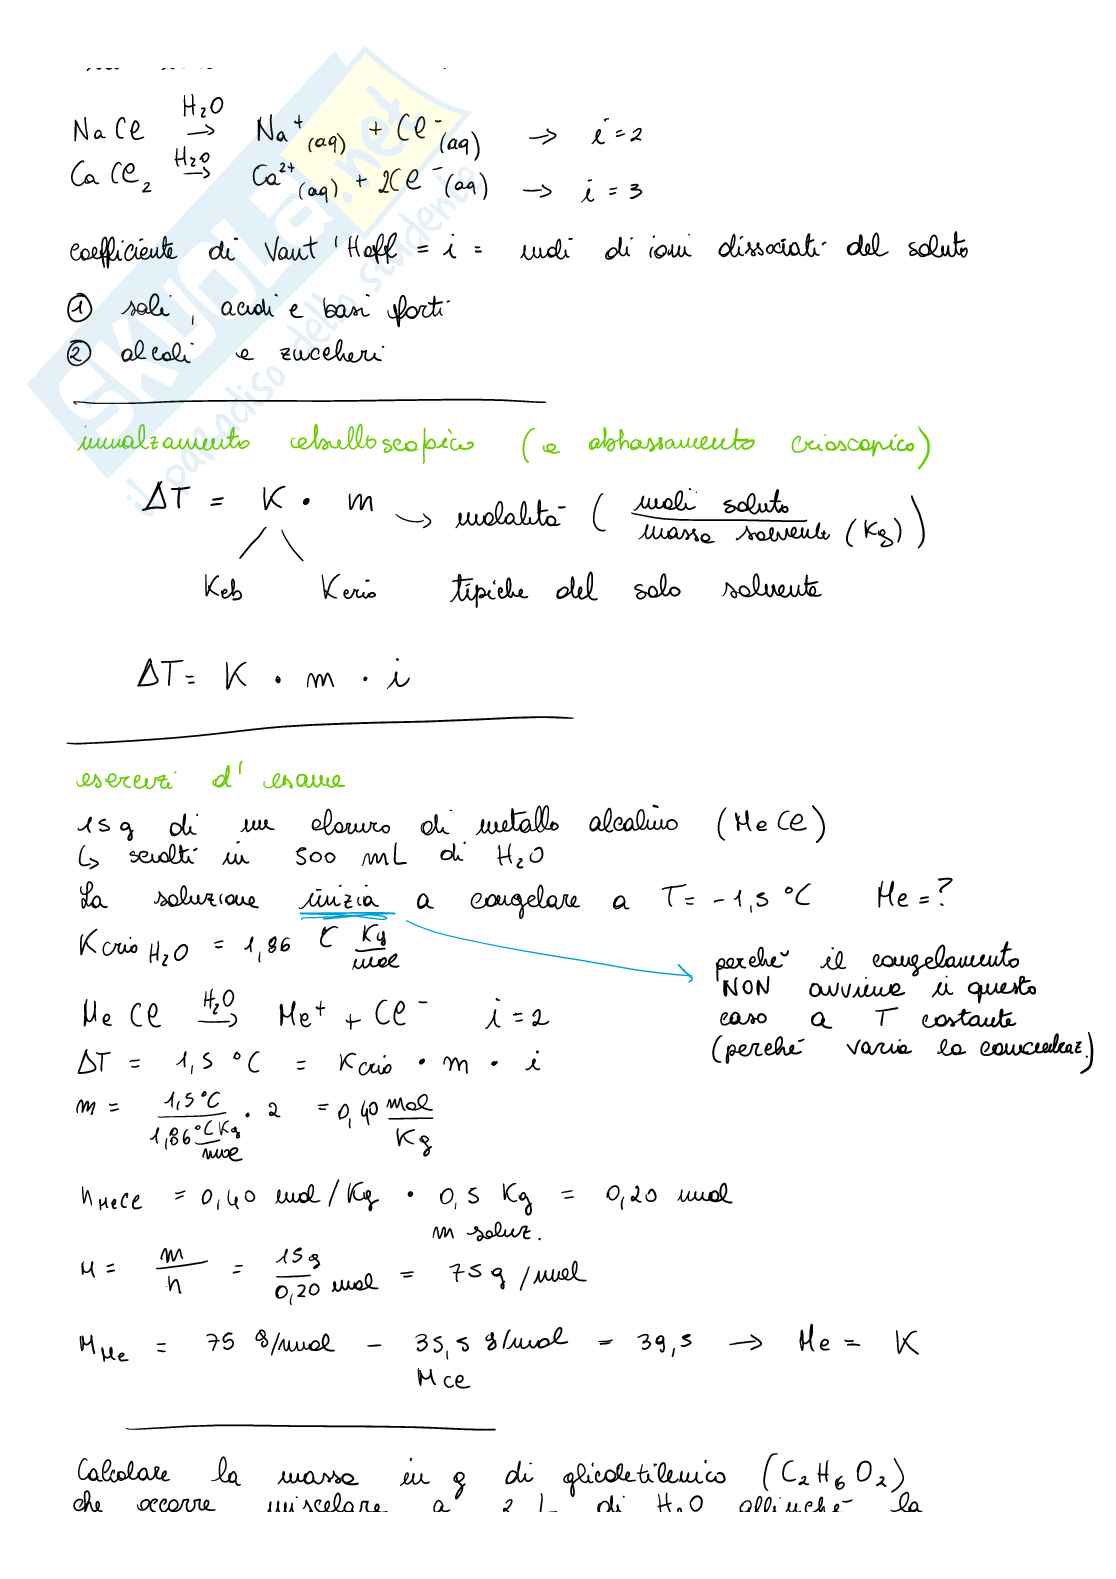 NaCl H₂O → Na⁺(aq) + Cl⁻(aq) → i = 2
CaCl₂ H₂O → Ca²⁺(aq) + 2Cl⁻(aq) → i = 3
coefficiente di Vant 'Hoff = i = moli di ioni dissociati del soluto
① sali, acidi e basi forti
② alcoli e zuccheri
innalzamento ebulloscopico (e abbassamento crioscopico)
ΔT = K · m → molalità ( moli soluto / massa solvente (Kg) )
Keb Kcrio tipiche del solo solvente
ΔT = K · m · i
esercizi d' esame
15 g di un cloruro di metallo alcalino (MeCl)
↳ sciolti in 500 mL di H₂O
La soluzione inizia a congelare a T = -1,5 °C Me = ?
Kcrio H₂O = 1,86 °C Kg/mol
perché il congelamento
NON avviene in questo
caso a T costante
(perché varia la concentraz.)
MeCl H₂O → Me⁺ + Cl⁻ i = 2
ΔT = 1,5 °C = Kcrio · m · i
m = 1,5 °C / 1,86 °C Kg/mol · 2 = 0,40 mol/Kg
nMeCl = 0,40 mol/Kg · 0,5 Kg = 0,20 mol
m soluz.
M = m/n = 15 g / 0,20 mol = 75 g/mol
MMe = 75 g/mol - 35,5 g/mol = 39,5 → Me = K
MCl
Calcolare la massa in g di glicoletilenico (C₂H₆O₂)
che occorre miscelare a 2 L di H₂O affinché la
SKUOLA.net
il paradiso dello studente